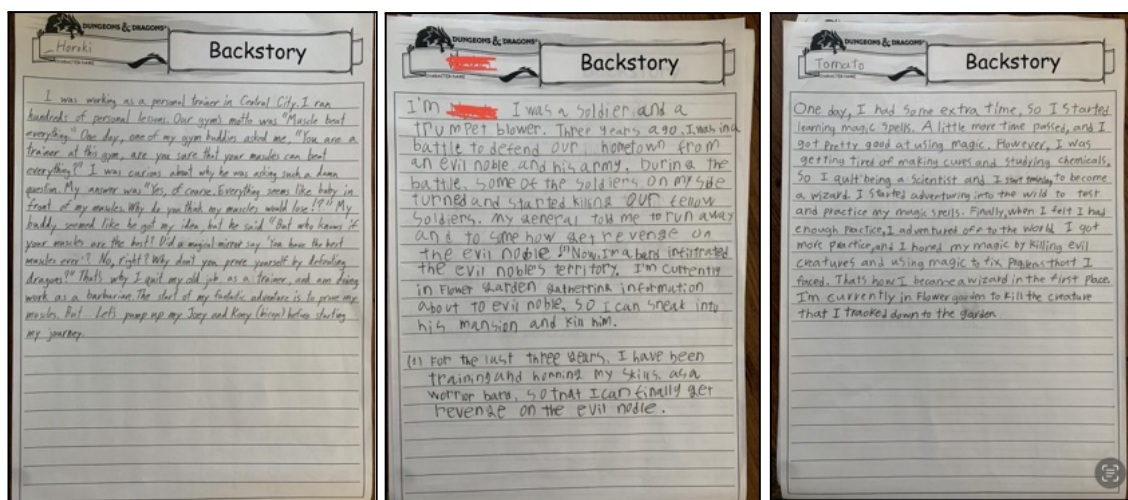 DUNGEONS & DRAGONS
Horoki
CHARACTER NAME
Backstory
I was working as a personal trainer in Central City. I ran
hundreds of personal lessons. Our gym's motto was "Muscle beat
everything." One day, one of my gym buddies asked me, "You are a
trainer at this gym, are you sure that your muscles can beat
everything?" I was curious about why he was asking such a damn
question. My answer was "Yes, of course. Everything seems like baby in
front of my muscles. Why do you think my muscles would lose!?" My
buddy seemed like he got my idea, but he said "But who knows if
your muscles are the best? Did a magical mirror say 'You have the best
muscles ever'? No, right? Why don't you prove yourself by defeating
dragons?" That's why I quit my old job as a trainer, and am doing
work as a barbarian. The start of my fantastic adventure is to prove my
muscles. But... Let's pump up my Joey and Koey (biceps) before starting
my journey.
DUNGEONS & DRAGONS
CHARACTER NAME
Backstory
I'm I was a soldier and a
trumpet blower. Three years ago, I was in a
battle to defend our hometown from
an evil noble and his army. During the
battle, some of the soldiers on my side
turned and started killing our fellow
soldiers. My general told me to run away
and to some how get revenge on
the evil noble (1) Now, I'm a bard infiltrated
the evil noble's territory. I'm currently
in Flower Garden gathering information
about to evil noble, so I can sneak into
his mansion and kill him.
(1) For the last three years, I have been
training and honning my skills as a
worrior bard, so that I can finally get
revenge on the evil noble.
DUNGEONS & DRAGONS
Tomato
CHARACTER NAME
Backstory
One day, I had some extra time, so I started
learning magic spells. A little more time passed, and I
got pretty good at using magic. However, I was
getting tired of making cures and studying chemicals,
so I quit being a scientist and I start training to become
a wizard. I started adventuring into the wild to test
and practice my magic spells. Finally, when I felt I had
enough practice, I adventured off to the world I got
more practice, and I honed my magic by killing evil
creatures and using magic to fix problems that I
faced. Thats how I became a wizard in the first place.
I'm currently in Flower garden to kill the creature
that I tracked down to the garden.